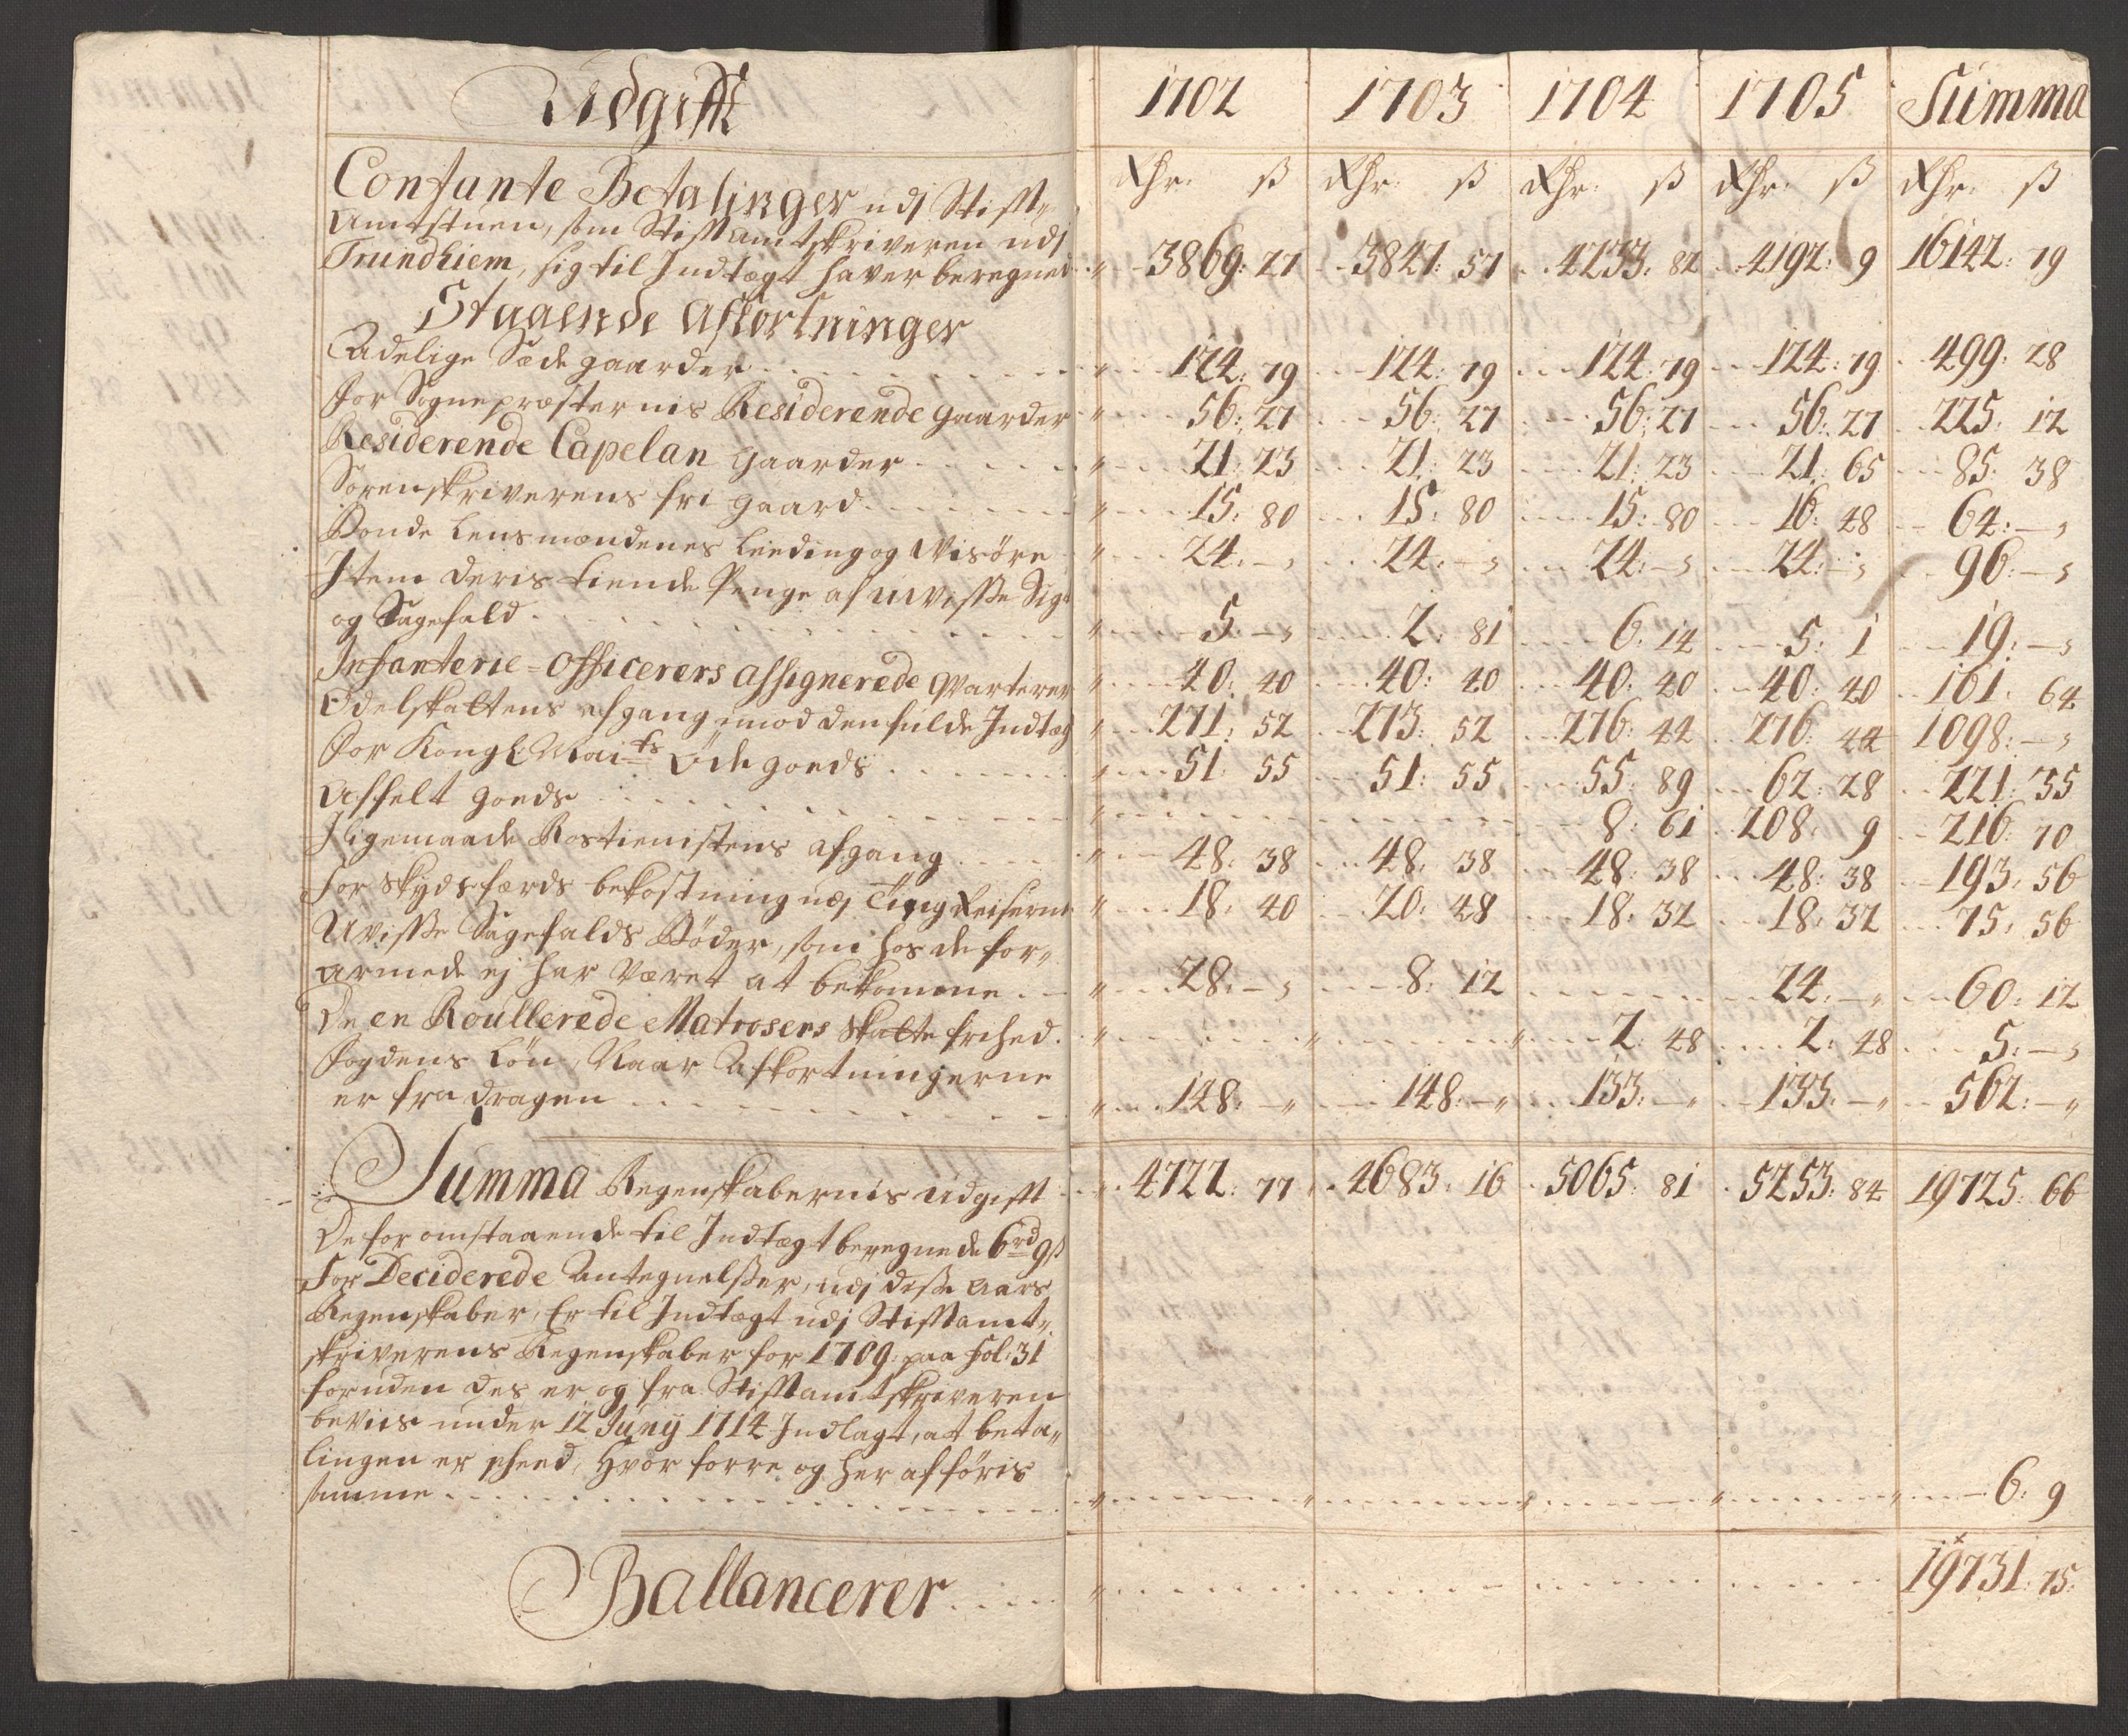 Udgifft
1702 1703 1704 1705 Summa
Rdr. ß Rdr. ß Rdr. ß Rdr. ß Rdr. ß
Contante Betalinger udj Stifft-
Amtstuen, som Stifftamtskriveren udj
Trundhiem, sig til Indtægt haver beregned " 3869: 27 3847: 57 4233: 82 4192: 9 16142: 79
Staaende Afkortninger
Adelige Sædegaarder " 124: 79 124: 79 124: 79 124: 79 499: 28
For Sognepræsternis Residerende gaarder " 56: 27 56: 27 56: 27 56: 27 225: 12
Residerende Capelan gaarder " 21: 23 21: 23 21: 23 21: 65 85: 38
Sorenskriverens fri gaard " 15: 80 15: 80 15: 80 16: 48 64: – "
Bonde Lensmændenes Leeding og Visöre " 24: – " 24: – " 24: – " 24: – " 96: – "
Item deris tiende Penge af uvisse Sigt
og Sagefald " 5: – " 2: 81 6: 14 5: 1 19: – "
Infanterie-Officerers assignerede Qvarterer " 40: 40 40: 40 40: 40 40: 40 161: 64
Odelskattens afgang imod den fulde Indtægt " 271: 52 273: 52 276: 44 276: 44 1098: – "
For Kongl Maits Öde goeds " 51: 55 51: 55 55: 89 62: 28 221: 35
Affelt goeds " 8: 61 208: 9 216: 70
Ligemaade Rostienistens afgang " 48: 38 48: 38 48: 38 48: 38 193: 56
For skydsfærds bekostning udj Ting Reiserne " 18: 40 20: 48 18: 32 18: 32 75: 56
Uvisse Sagefalds Böder, som hos de for-
armede ej har været at bekomme " 28: – " 8: 12 24: – " 60: 12
De en Roullerede Matrosers Skatte frihed " " " 2: 48 2: 48 5: – "
Fogdens Lön, Naar Afkortningerne
er fra dragen " 148: – " 148: – " 133: – " 133: – " 562: – "
Summa Regenskabernis udgifft 4722: 77 4683: 16 5065: 81 5253: 84 19725: 66
De for omstaaende til Indtægt beregnede 6rd 9ß
For Deciderede Antegnelsser, udj disse aars
Regenskaber, Er til Indtægt udj Stifftamt-
skriverens Regenskaber for 1709. paa fol: 31
foruden des er og fra Stifftamtskriveren
beviis under 12 Junij 1714 Indlagt, at beta-
lingen er skeed, Hvor forre og her afföris
samme " " " " " 6: 9
Ballancerer " 19731: 75: